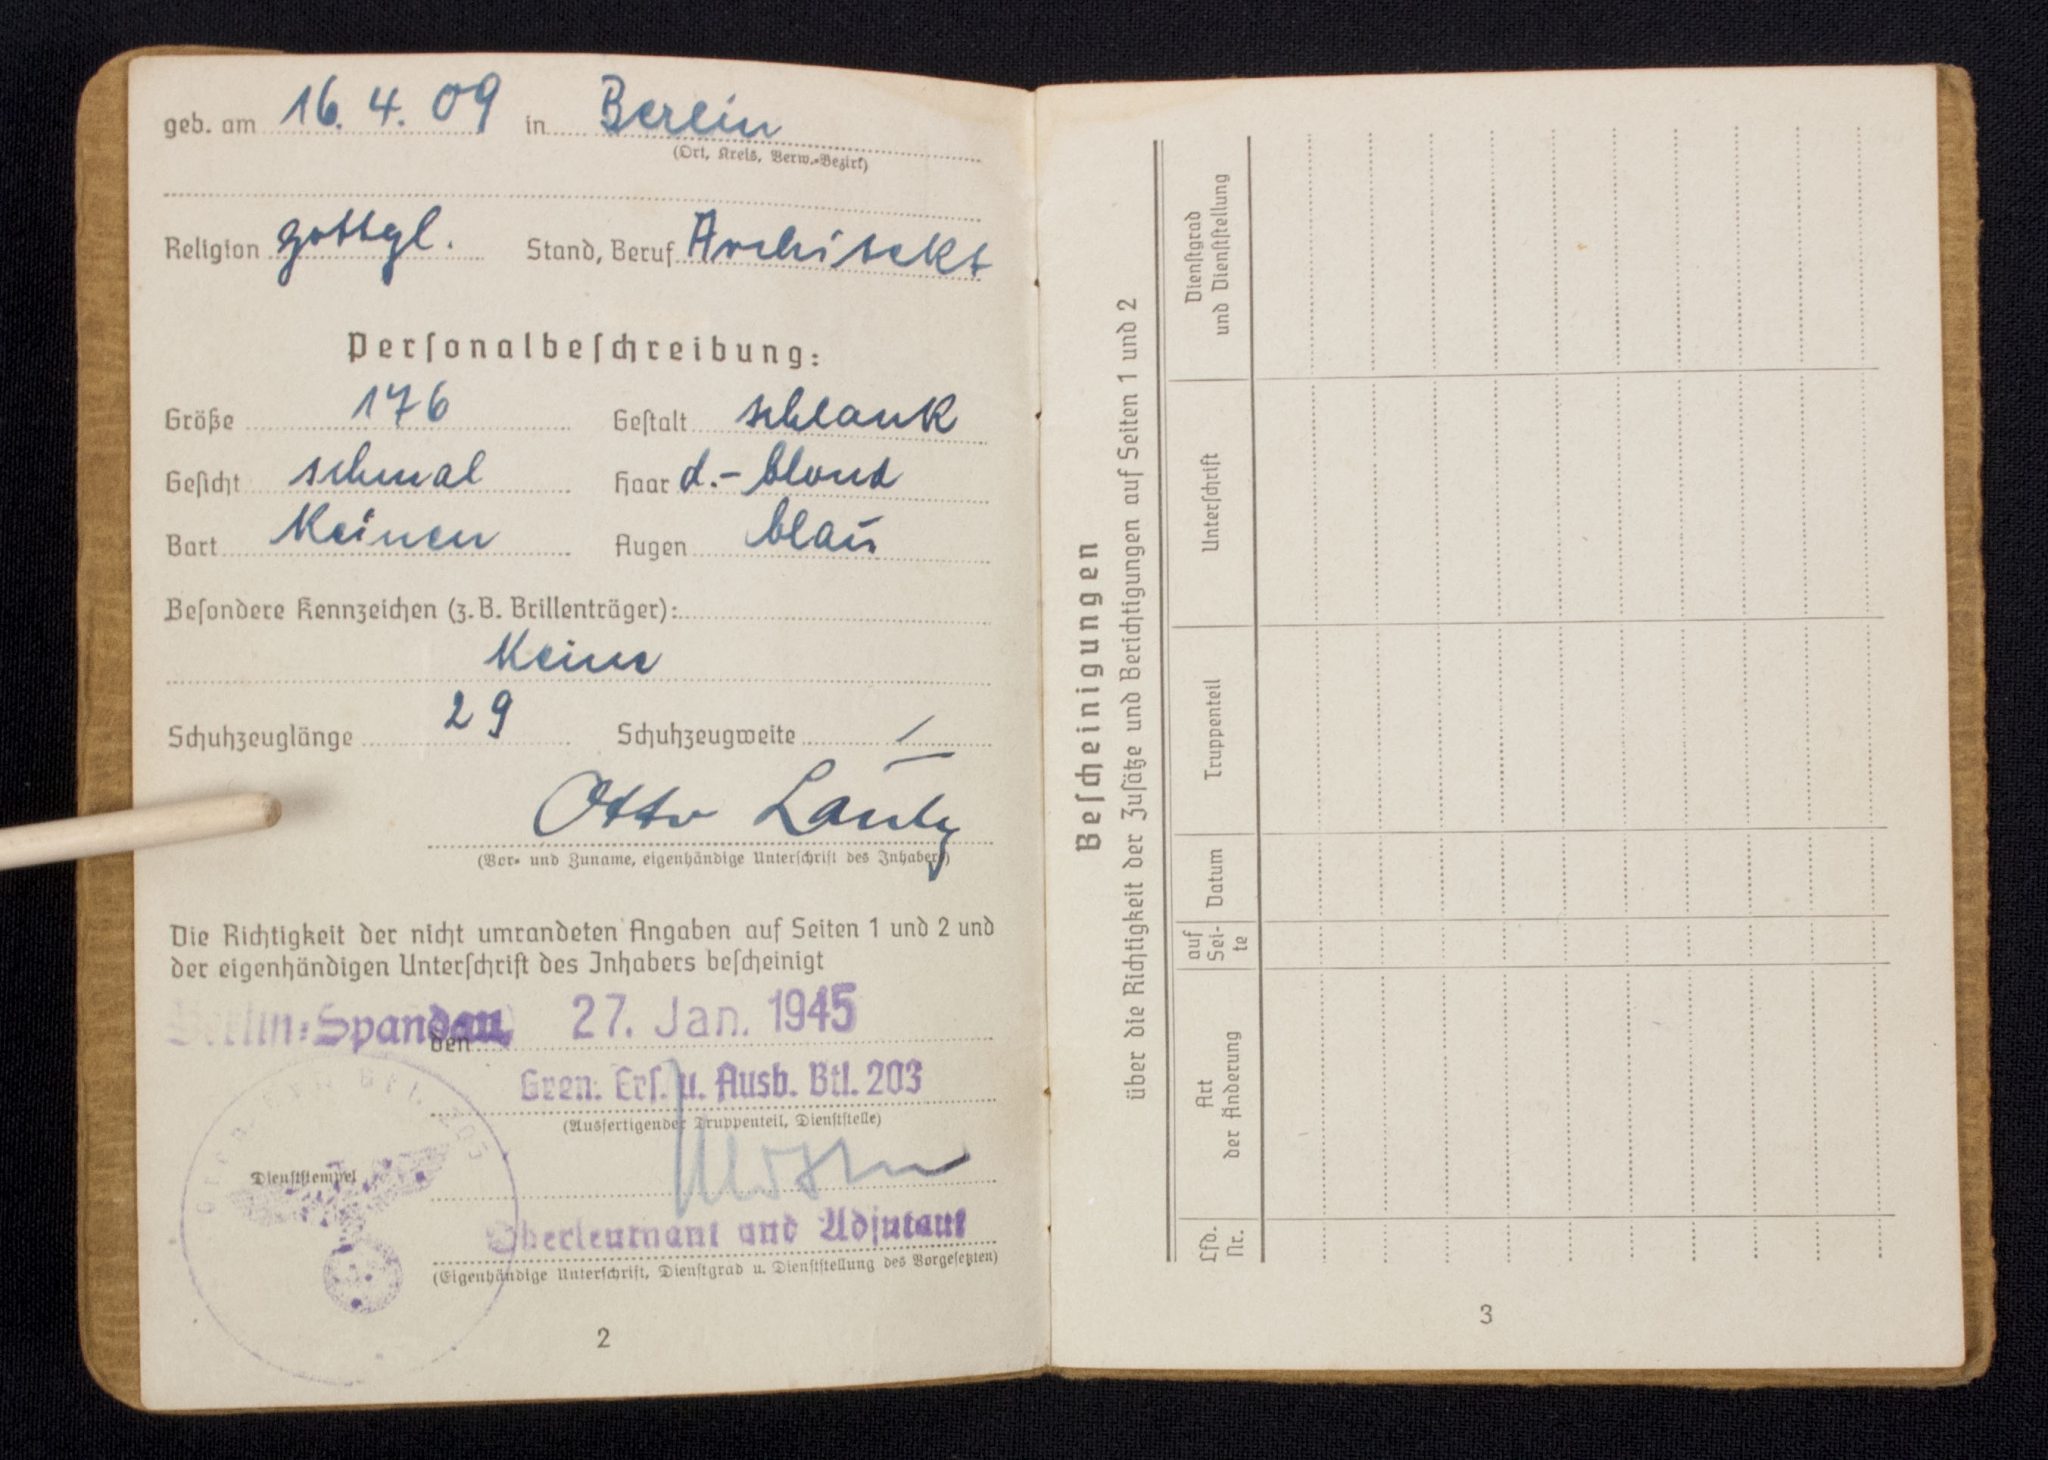 geb. am 16. 4. 09 in Berlin
(Ort, Kreis, Verw.-Bezirk)
Religion gottgl. Stand, Beruf Architekt
Personalbeschreibung:
Größe 176 Gestalt schlank
Gesicht schmal Haar d.-blond
Bart Keinen Augen blau
Besondere Kennzeichen (z. B. Brillenträger):
Keine
Schuhzeuglänge 29 Schuhzeugweite /
Otto
(Vor- und Zuname, eigenhändige Unterschrift des Inhabers)
Die Richtigkeit der nicht umrandeten Angaben auf Seiten 1 und 2 und
der eigenhändigen Unterschrift des Inhabers bescheinigt
Berlin-Spandau den 27. Jan. 1945
Gren. Ers. u. Ausb. Btl. 203
(Ausfertigender Truppenteil, Dienststelle)
Dienststempel
Oberleutnant und Adjutant
(Eigenhändige Unterschrift, Dienstgrad u. Dienststellung des Vorgesetzten)
2
Bescheinigungen
über die Richtigkeit der Zusätze und Berichtigungen auf Seiten 1 und 2
Lfd. Nr.
Art der Änderung
auf Sei- te
Datum
Truppenteil
Unterschrift
Dienstgrad und Dienststellung
3